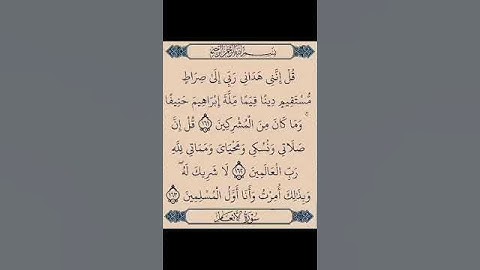 بسم الله الرحمن الرحيم
قُلْ إِنَّنِى هَدَانِى رَبِّى إِلَىٰ صِرَاطٍ
مُّسْتَقِيمٍ دِينًا قِيَمًا مِّلَّةَ إِبْرَاهِيمَ حَنِيفًا
ۚ وَمَا كَانَ مِنَ الْمُشْرِكِينَ ﴿١٦١﴾ قُلْ إِنَّ
صَلَاتِى وَنُسُكِى وَمَحْيَاىَ وَمَمَاتِى لِلَّهِ
رَبِّ الْعَالَمِينَ ﴿١٦٢﴾ لَا شَرِيكَ لَهُ ۖ
وَبِذَٰلِكَ أُمِرْتُ وَأَنَا أَوَّلُ الْمُسْلِمِينَ ﴿١٦٣﴾
سورة الأنعام